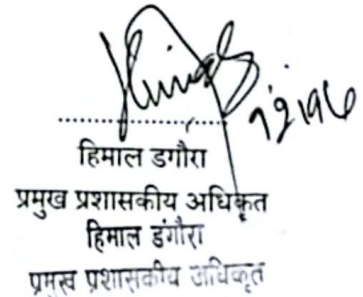 हिमाल डगौरा
प्रमुख प्रशासकीय अधिकृत
हिमाल डंगौरा
प्रमुख प्रशासकीय अधिकृत